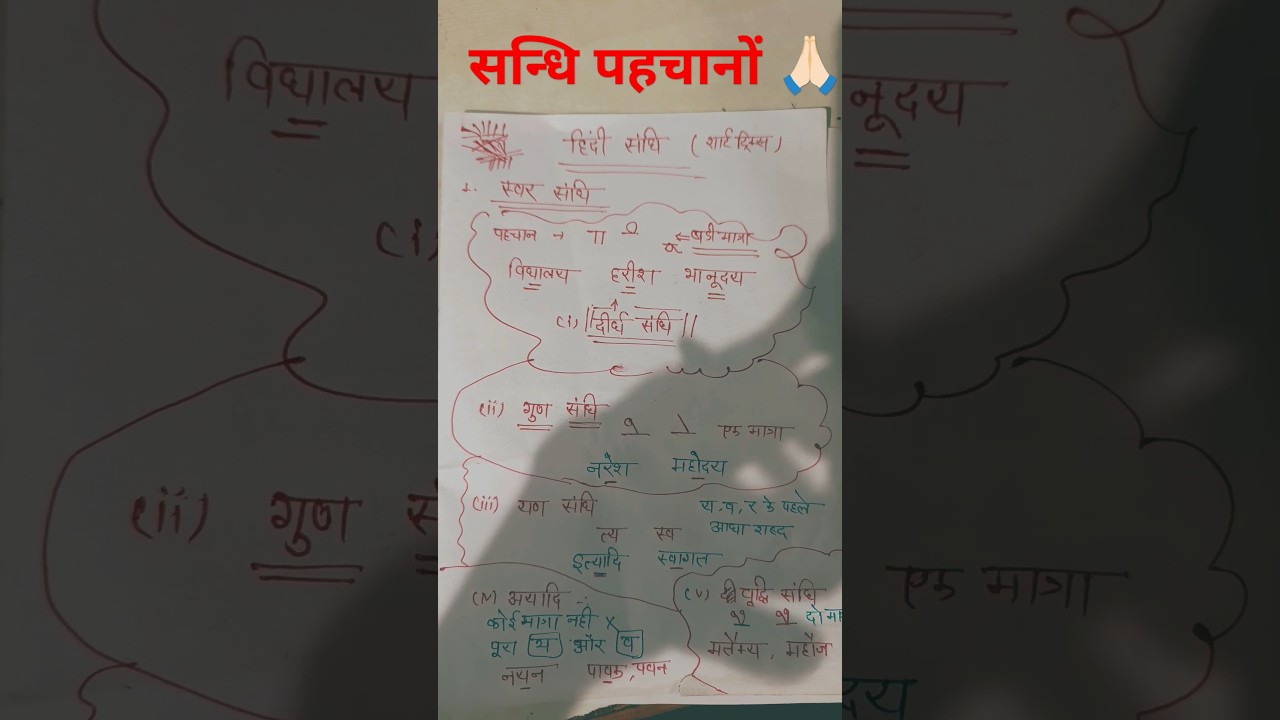 सन्धि पहचानों 🙏🏻
हिंदी संधि ( शार्ट ट्रिक्स )
1. स्वर संधि
पहचान → ा ी ू ⇐ बडी मात्रा
विद्यालय हरीश भानूदय
(i) || दीर्घ संधि ||
(ii) गुण संधि े ो एक मात्रा
नरेश महोदय
(iii) यण संधि य, व, र के पहले
त्य स्व आधा शब्द
इत्यादि स्वागत
(iv) अयादि :-
कोई मात्रा नही x
पूरा य और व
नयन पावक, पवन
(v) वृद्धि संधि
ै ौ दो
मतैक्य, महौज